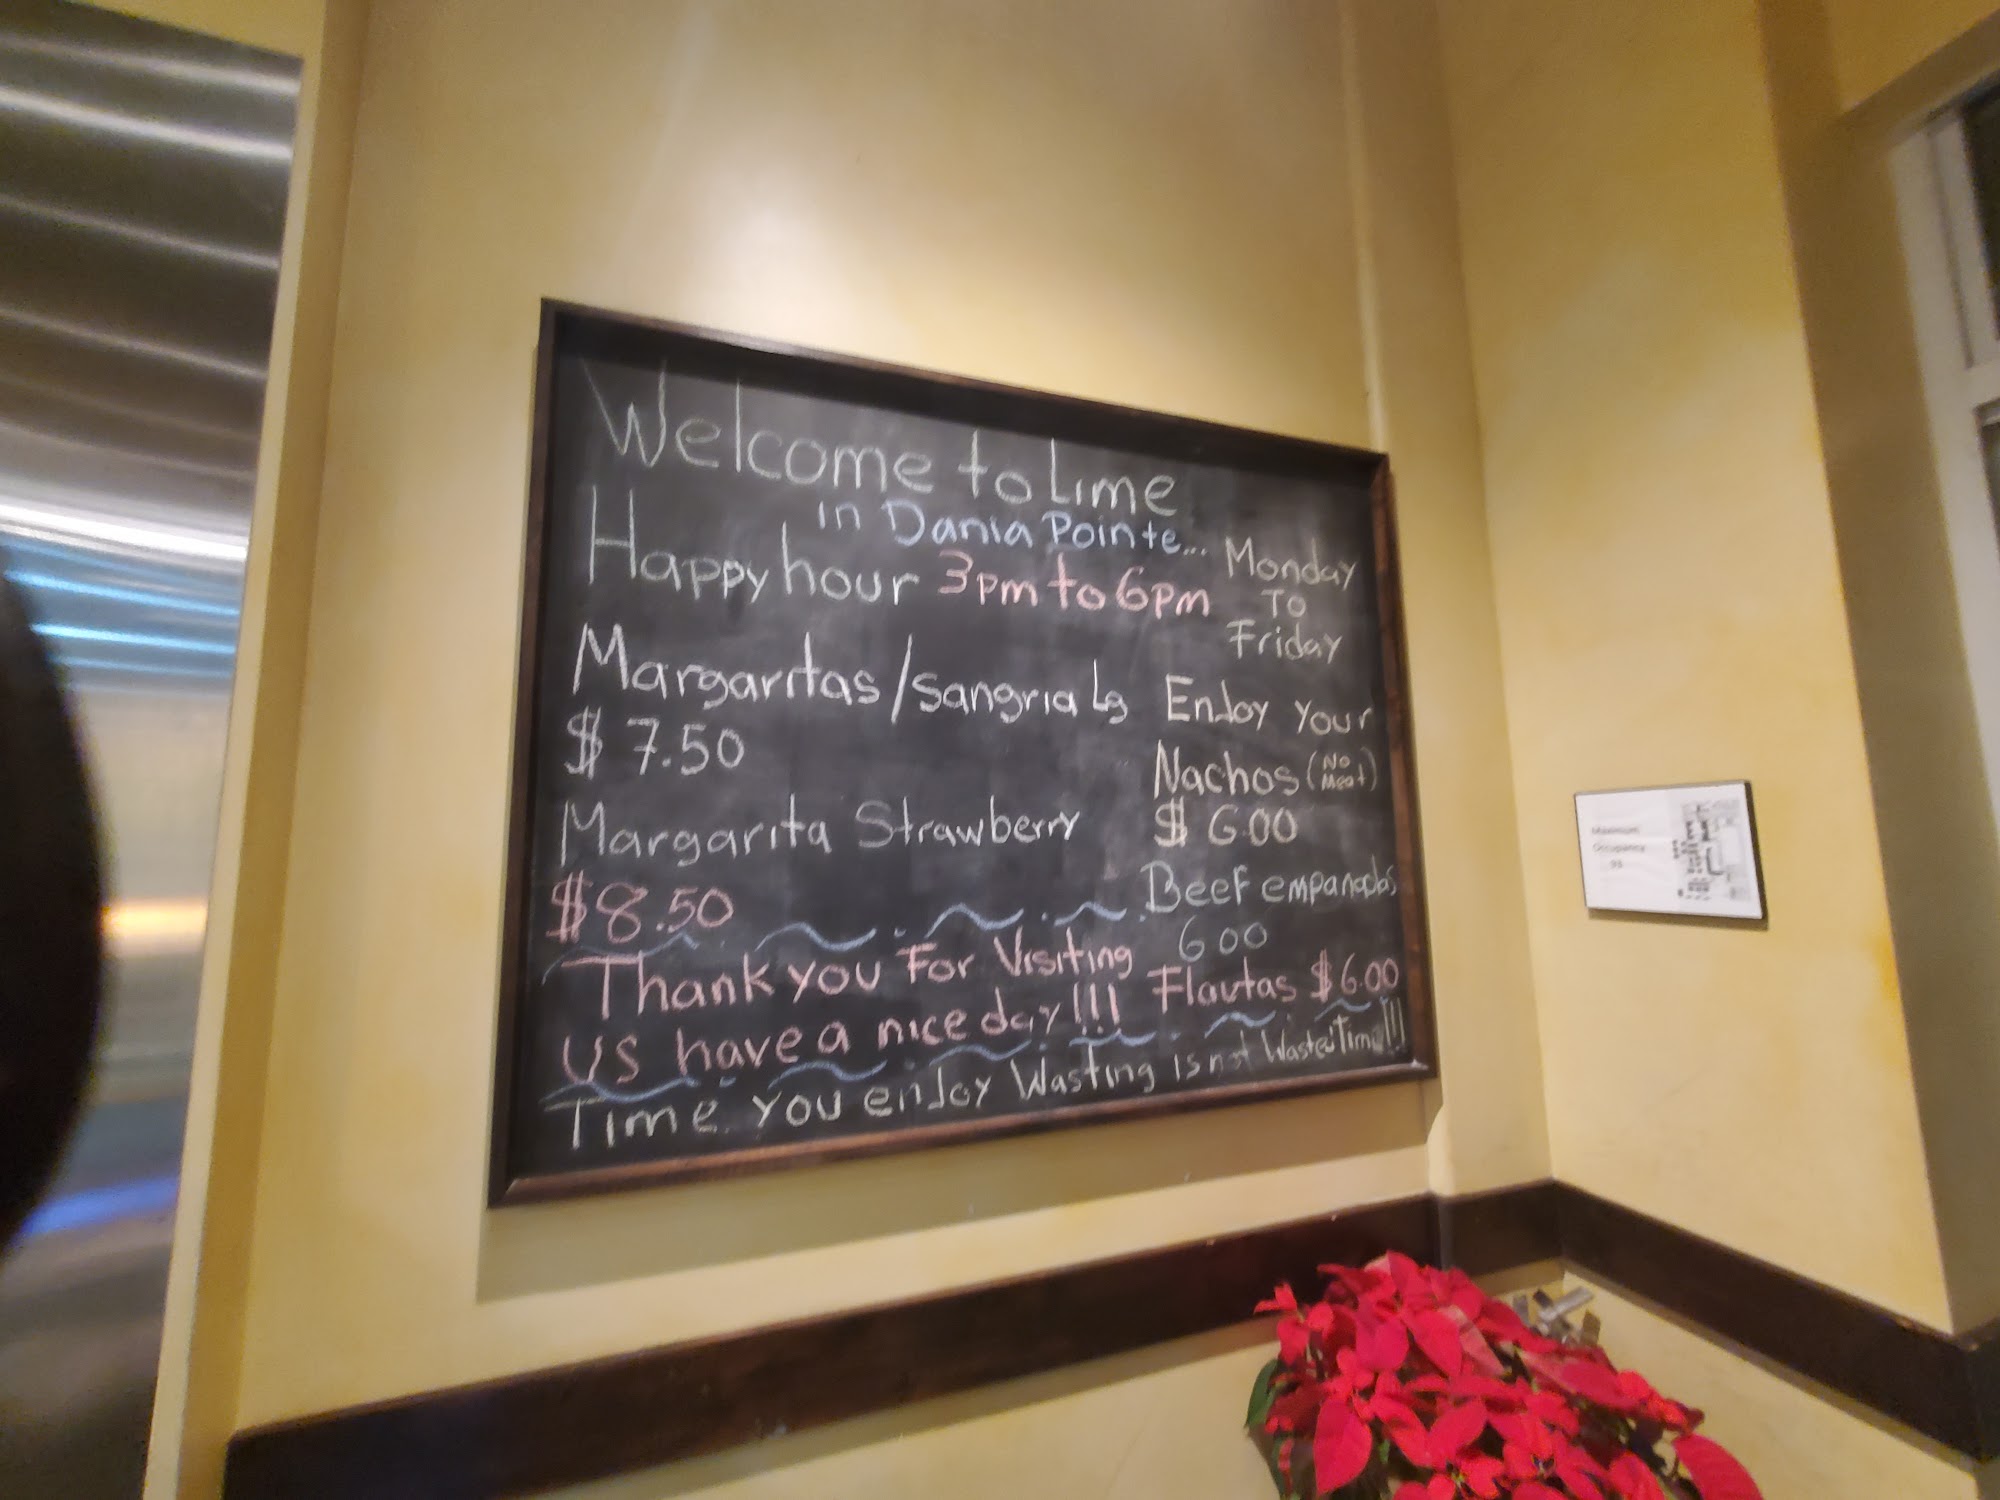 Welcome to Lime
in Dania Pointe...
Happy hour 3pm to 6pm
Monday
TO
Friday
Margaritas/Sangria Lg
$ 7.50
Margarita Strawberry
$8.50
Enjoy Your
Nachos (No Meat)
$ 6.00
Beef empanadas
6 00
Flautas $6.00
Thank you For Visiting
US have a nice day!!!
Time you enjoy Wasting is not Wasted Time!!!
Maximum
Occupancy
93